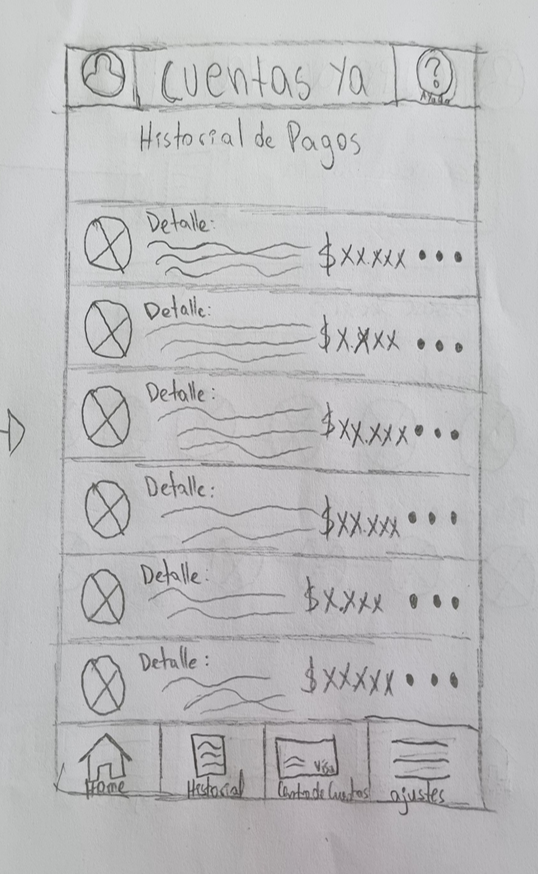 Cuentas Ya
Ayuda
Historial de Pagos
Detalle:
$XX.XXX
Detalle:
$X.XXX
Detalle:
$XX.XXX
Detalle:
$XX.XXX
Detalle:
$X.XXX
Detalle:
$XXXXX
Visa
Home
Historial
de Cuentas
ajustes